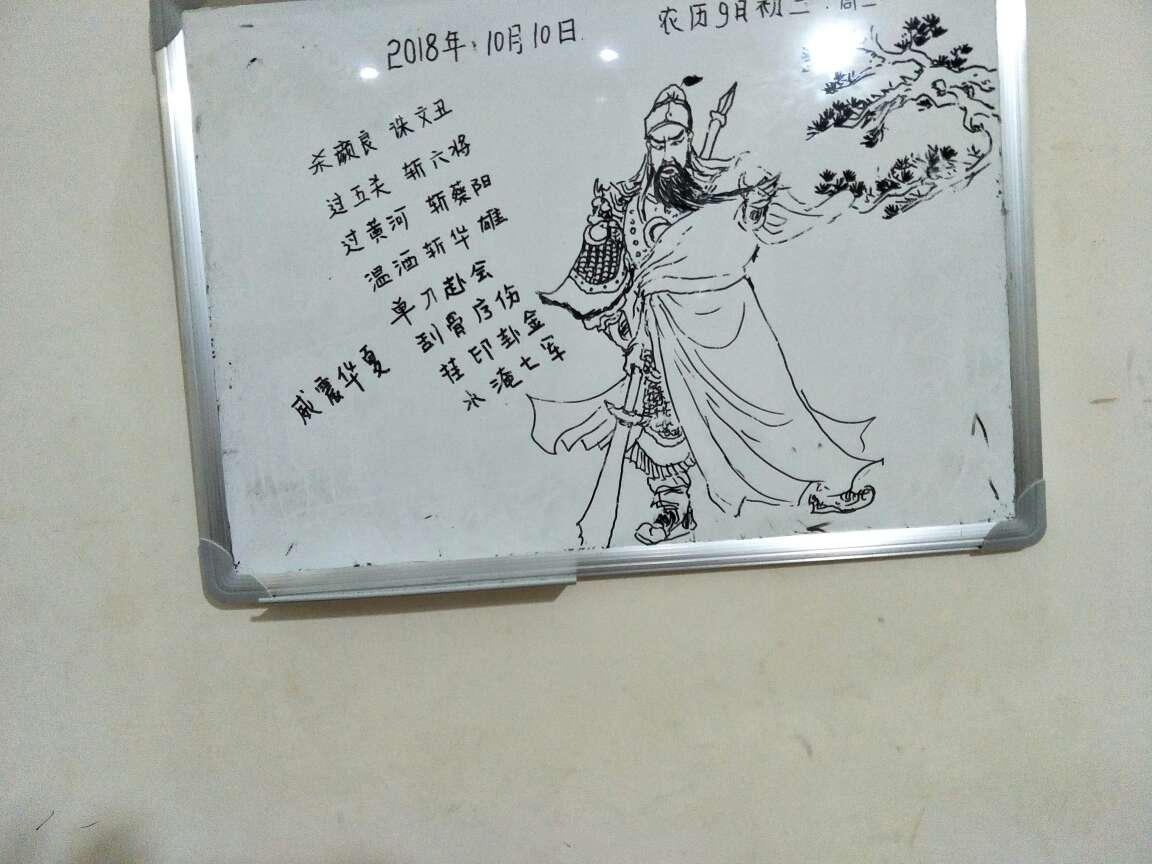 2018年·10月10日
农历9月初二·周三
杀颜良 诛文丑
过五关 斩六将
过黄河 斩蔡阳
温酒斩华雄
单刀赴会
刮骨疗伤
挂印封金
水淹七军
威震华夏